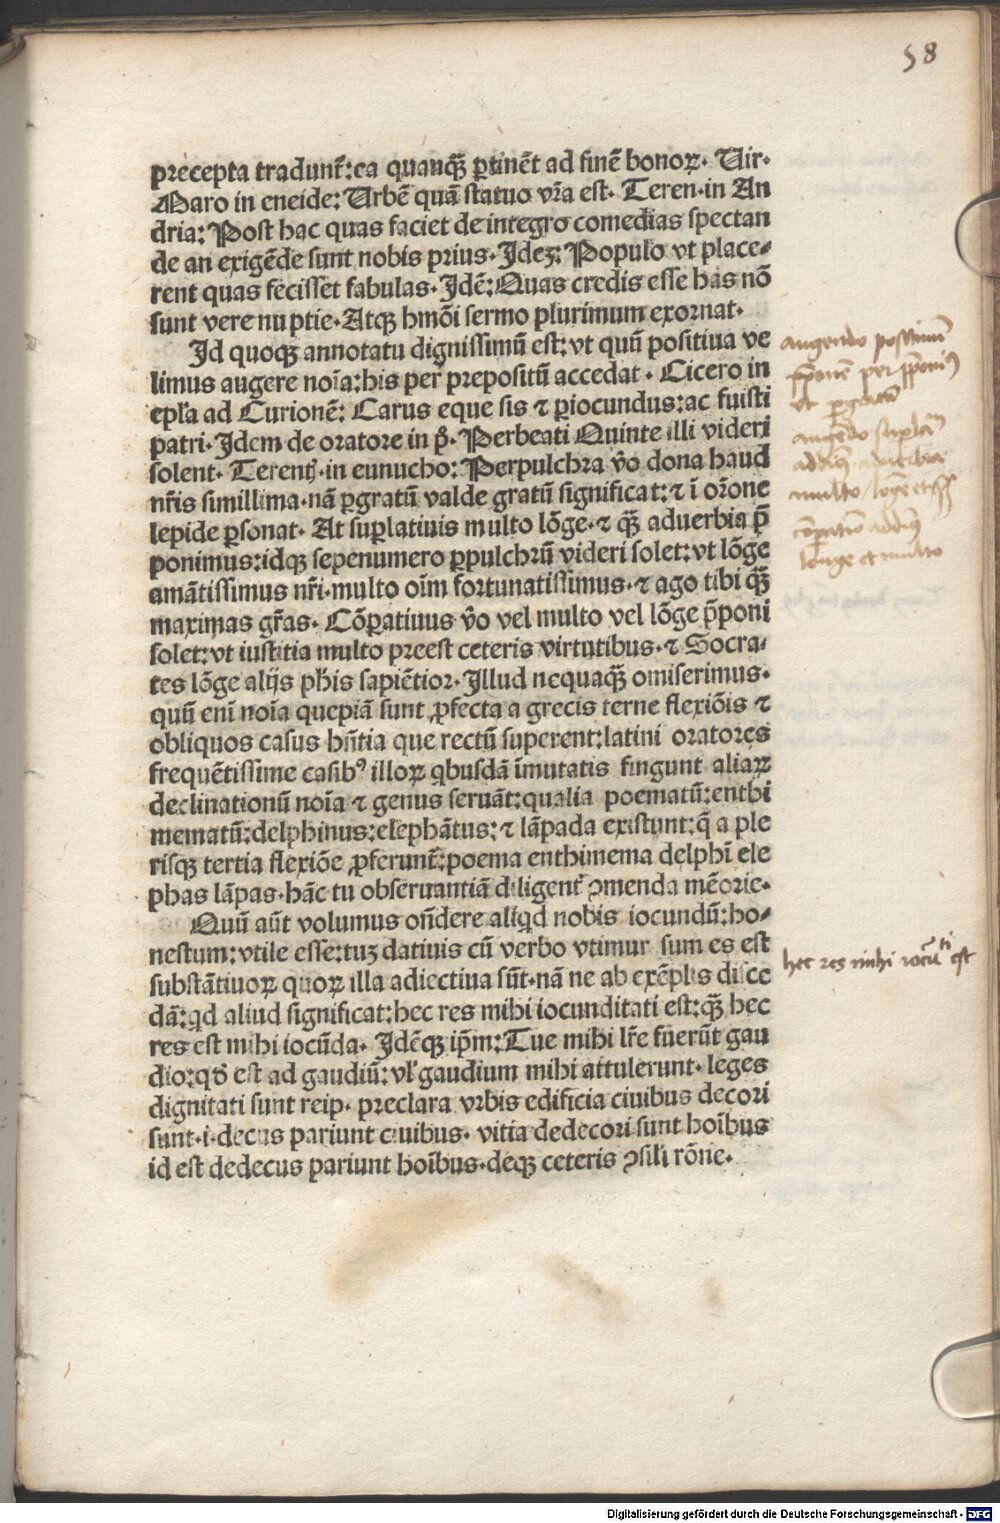 58
precepta tradunt᷑: ea quanq̃ꝫ ꝑtinẽt ad finẽ bonoꝝ. Uir.
Maro in eneide: Urbẽ quã statuo vr̃a est. Teren. in An
dria: Post hac quas faciet de integro comedias spectan
de an exigẽde sunt nobis prius. Ideꝫ: Populo vt place⸗
rent quas fecisset fabulas. Idẽ: Quas credis esse has nõ
sunt vere nuptie. Atqꝫ hmõi sermo plurimum exornat.
Id quoqꝫ annotatu dignissimũ est: vt quũ positiua ve
limus augere noĩa: his per prepositũ accedat. Cicero in
epl̃a ad Curionẽ: Carus eque sis ⁊ ꝑiocundus: ac fuisti
patri. Idem de oratore in p̊. Perbeati Quinte illi videri
solent. Terentij. in eunucho: Perpulchra v̊o dona haud
nr̃is simillima. nã ꝑgratũ valde gratũ significat: ⁊ ĩ or̃one
lepide ꝑsonat. At suꝑlatiuis multo lõge. ⁊ q̃ꝫ aduerbia p̃
ponimus: idqꝫ sepenumero ꝑpulchrũ videri solet: vt lõge
amãtissimus nr̃i. multo oĩm fortunatissimus. ⁊ ago tibi q̃ꝫ
maximas gr̃as. Cõꝑatiuus v̊o vel multo vel lõge p̃poni
solet: vt iustitia multo preest ceteris virtutibus. ⁊ Socra⸗
tes lõge alijs ph̃is sapiẽtior. Illud nequaq̃ꝫ omiserimus.
quũ enĩ noĩa quepiã sunt ꝓfecta a grecis terne flexiõis ⁊
obliquos casus hñtia que rectũ superent: latini oratores
frequẽtissime casibꝰ illoꝝ qbusdã ĩmutatis fingunt aliaꝝ
declinationũ noĩa ⁊ genus seruãt: qualia poematũ: enthi
mematũ: delphinus: elephãtus: ⁊ lãpada existunt: q̃ a ple
risqꝫ tertia flexiõe ꝓferunt᷑: poema enthimema delphĩ ele
phas lãpas. hãc tu obseruantiã diligent᷑ ꝯmenda mẽorie.
Quũ aũt volumus on̄dere aliqd nobis iocundũ: ho⸗
nestum: vtile esse: tuꝫ datiuis cũ verbo vtimur sum es est
substãtiuoꝝ quoꝝ illa adiectiua sũt. nã ne ab exẽplis disce
dã: qd aliud significat: hec res mihi iocunditati est: q̃ꝫ hec
res est mihi iocũda. Idẽqꝫ ip̃m: Tue mihi lr̃e fuerũt gau
dio: qd̓ est ad gaudiũ: vl̓ gaudium mihi attulerunt. leges
dignitati sunt reip. preclara vrbis edificia ciuibus decori
sunt. i. decus pariunt ciuibus. vitia dedecori sunt hoĩbus
id est dedecus pariunt hoĩbus. deqꝫ ceteris ꝯsili rõne.
augendo
vt ꝑgratũ
multo
longe et multo
hec res mihi iocũ ti est
Digitalisierung gefördert durch die Deutsche Forschungsgemeinschaft - DFG